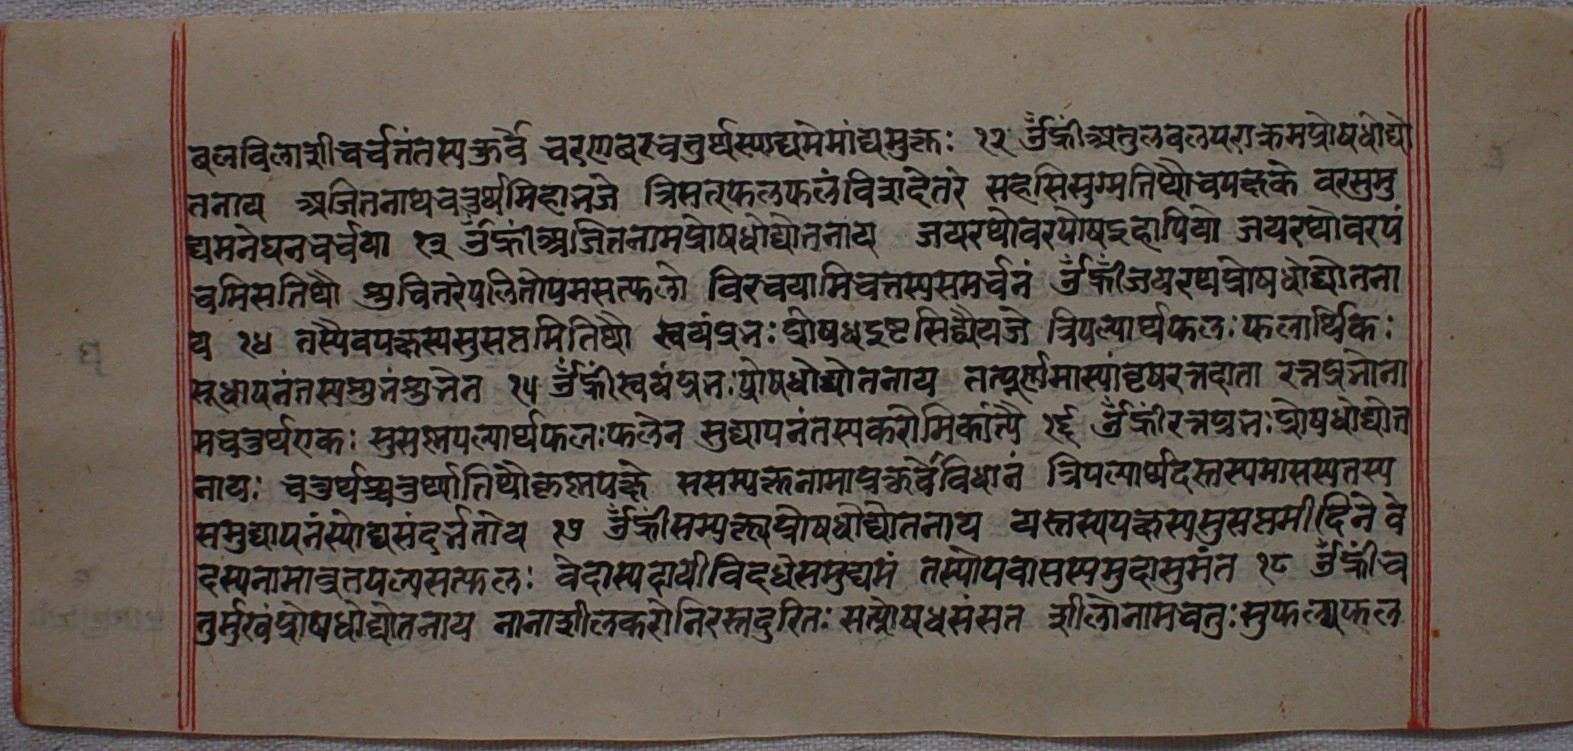 बलविलाशीचर्चतंतस्यकुर्वे चरणवरचतुर्थस्याद्यमेमांद्यमुक्तः १२ ॐह्रींअतुलबलपराक्रमप्रोषधोद्यो
तनाय अजितनाथचतुर्थमिहानजे त्रिसतत्फलफलंविशदेतरं सहसिसुग्मतिथौचपक्षके वरसुमु
द्यमनेघनचर्चया १३ ॐह्रींअजितनामप्रोषधोद्योतनाय जयरथोवरपौषइहापियो जयरथोवरपं
चमिसतिथौ शुचितरेपलितोपमसत्फलो विरचयामिचतस्यसमर्चनं ॐह्रींजयरथप्रोषधोद्योतना
य १४ तस्यैवपक्षस्यसुसप्तमितिथौ स्वयंप्रभः प्रोषधइष्टसिद्ध्यैयजे त्रिपल्यार्थफलःफलार्थिकः
सुधापनंतस्यशुनंशुनेन १५ ॐह्रींस्वयंप्रभःप्रोषधोद्योतनाय तत्पूर्णमास्यांवृषरत्नदाता रत्नप्रभोना
मचतुर्थएकः सुसप्तपल्यार्थफलःफलेन सुद्यापनंतस्यकरोमिकांत्यै १६ ॐह्रींरत्नप्रभःप्रोषधोद्योत
नायः चतुर्थश्चतुर्थ्यातिथौकृष्णपक्षे ससम्यक्तनामाप्रकुर्वेविधानं त्रिपल्यार्थदस्तस्यमासस्यतस्य
समुद्यापनंस्योद्यसंदर्नतोय १७ ॐह्रींसम्यक्त्वप्रोषधोद्योतनाय यस्तस्यपक्षस्यसुसप्तमीदिने वे
दस्यनामाव्रतपल्यसत्फलः वेदास्यदायीविदधेसमुद्यमं तस्योपवासस्यमुदासुमंत १८ ॐह्रींच
तुर्मुखंप्रोषधोद्योतनाय नानाशीलकरोनिरस्तदुरितः सत्प्रोषधसंसत शीलोनामचतुःसुफल्यफल